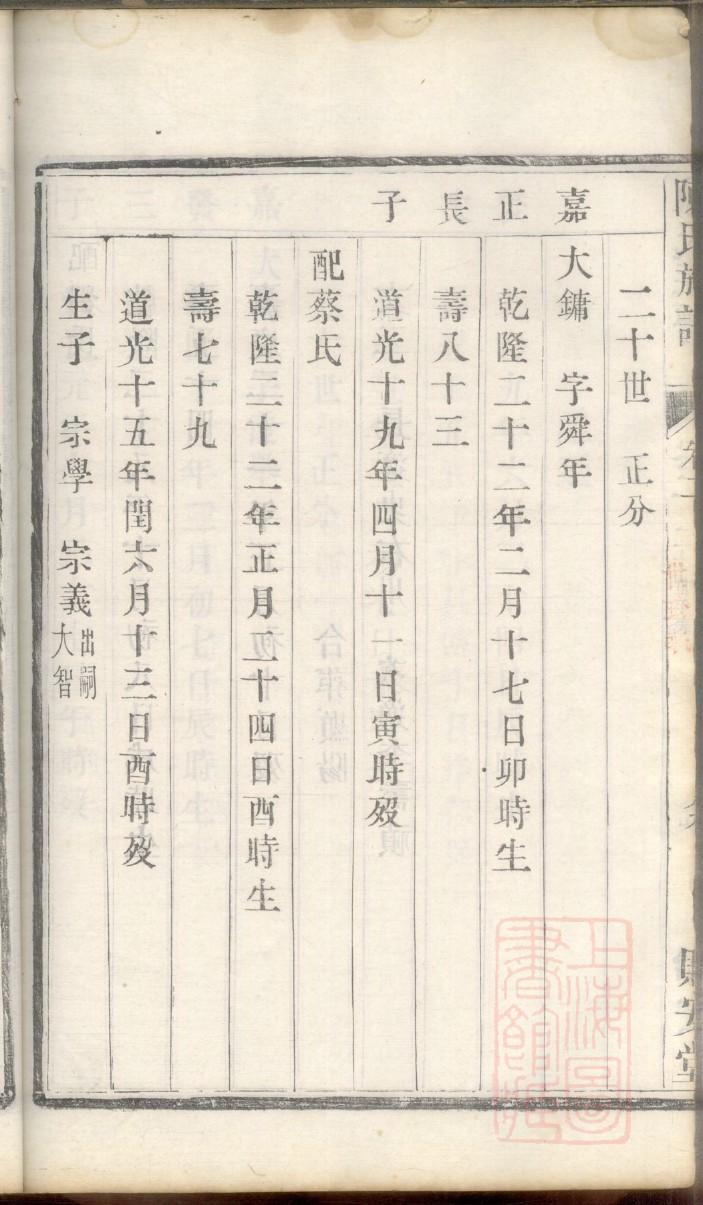 陳氏族譜
二十世　正分
嘉正長子
大鏞　字舜年
乾隆二十二年二月十七日卯時生
壽八十三
道光十九年四月十一日寅時歿
配蔡氏
乾隆二十二年正月二十四日酉時生
壽七十九
道光十五年閏六月十三日酉時歿
生子　宗學　宗義
出嗣
大智
上海圖書館藏